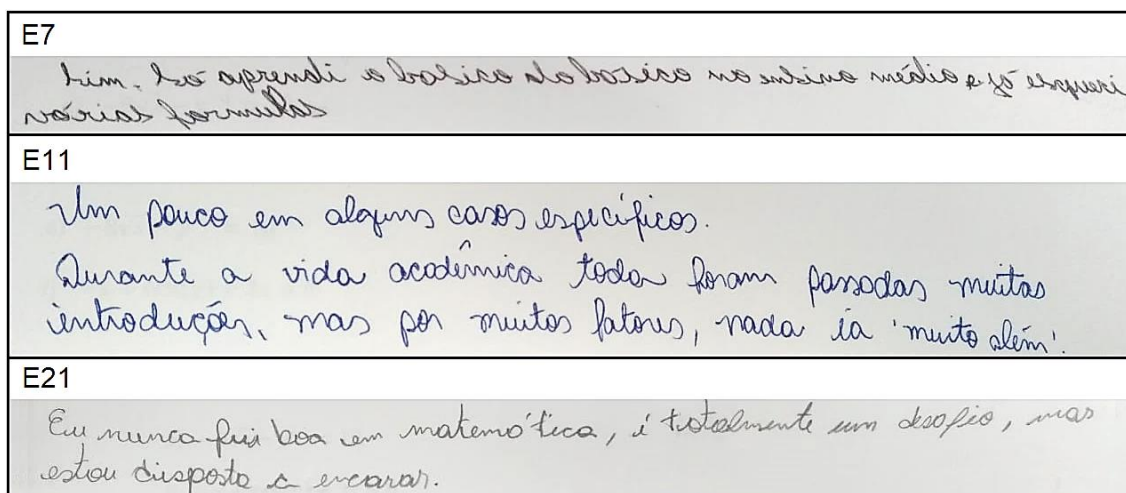 E7
Sim. Só aprendi o basico do basico no ensino médio e já esqueci
várias formulas
E11
Um pouco em alguns casos específicos.
Durante a vida acadêmica toda foram passadas muitas
introduções, mas por muitos fatores, nada ia 'muito além'.
E21
Eu nunca fui boa em matemática, é totalmente um desafio, mas
estou disposta a encarar.